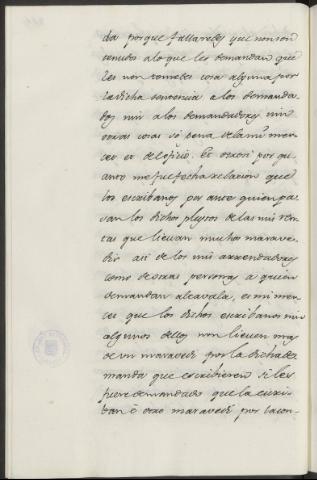 da porque fallaredes que non son
tenudos a lo que les demandan que
les non tomedes cosa alguna por
la dicha sentencia a los demanda-
dos nin a los demandadores nin
otras cosas so pena de la mi mer-
ced et del oficio. Et otrosi por qu
anto me fue fecha relacion que
los escribanos por ante quien pa-
san los dichos pleytos de las mis ren-
tas que lievan muchos marave-
dis asi de los mis arrendadores
como de otras personas a quien
demandan alcavala, es mi mer-
ced que los dichos escribanos nin
algunos dellos non lieven mas
de un maravedi por la dicha de-
manda que escribieren si les
fuere demandado que la escri-
van é otro maravedi por la con-